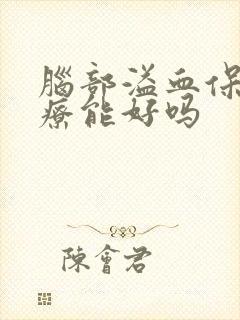 腦部溢血保
療能好吗
陳會君